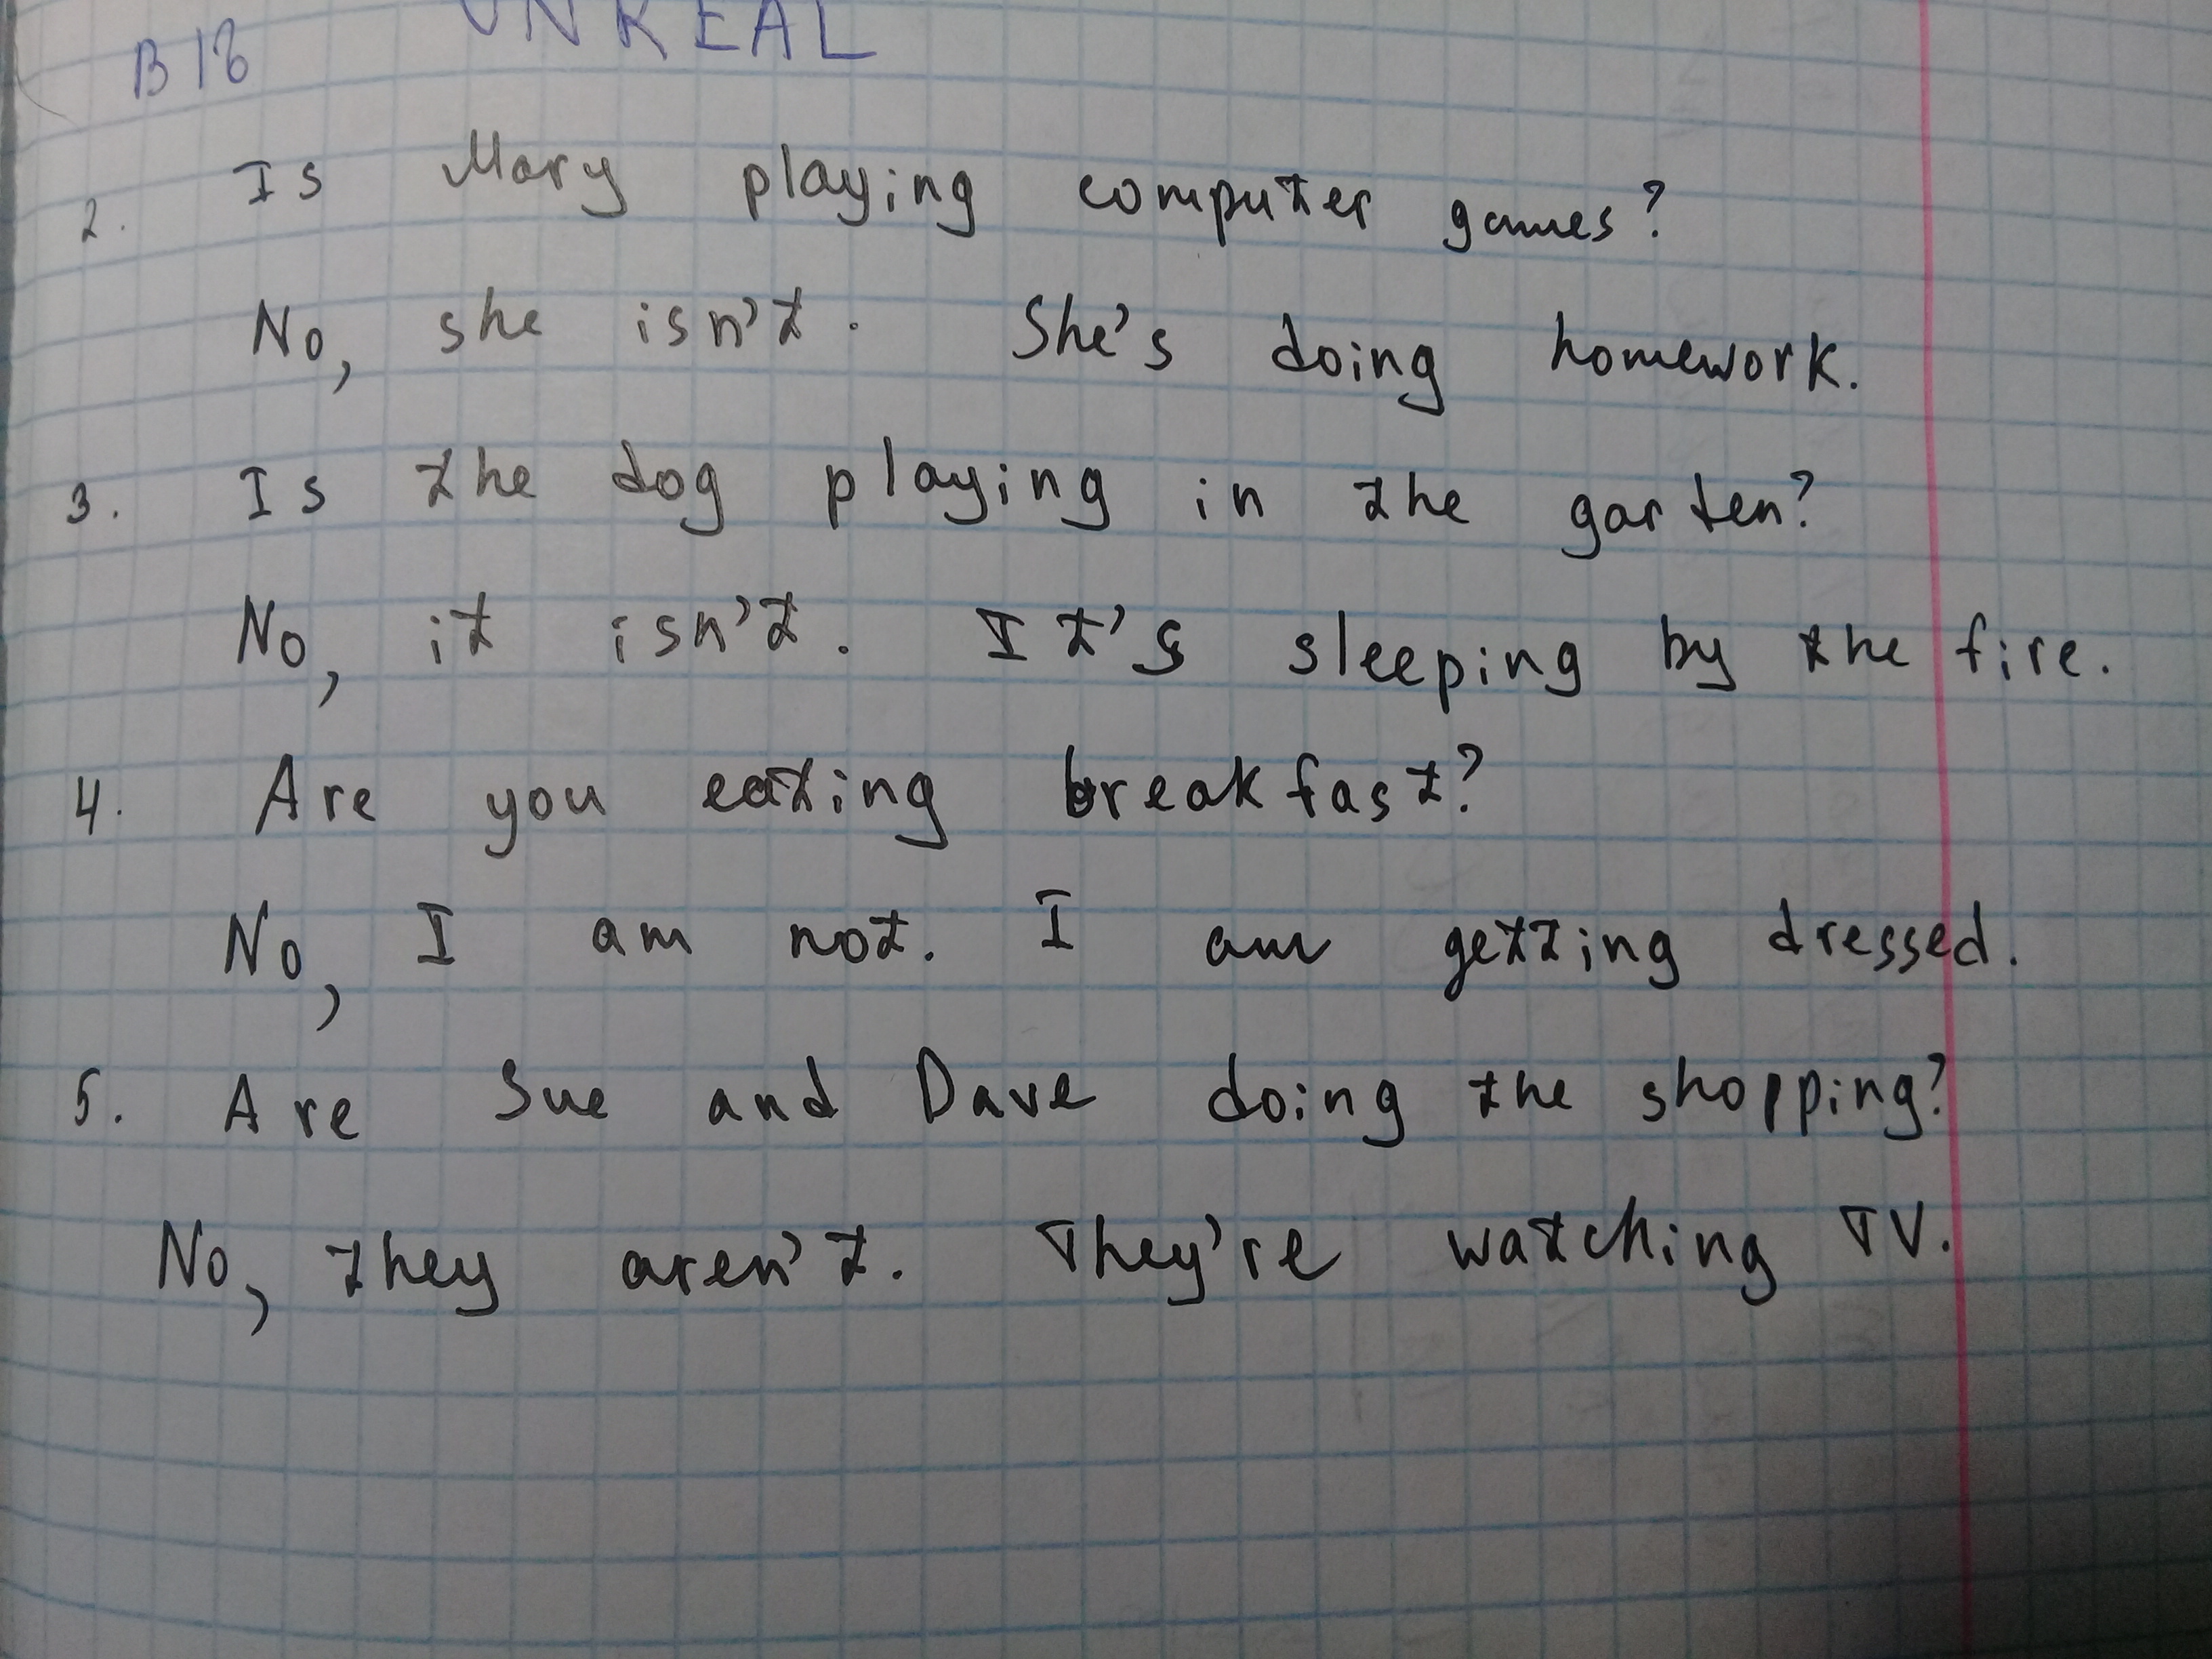 B18 UNREAL
2. Is Mary playing computer games?
No, she isn't. She's doing homework.
3. Is the dog playing in the garten?
No, it isn't. It's sleeping by the fire.
4. Are you eating breakfast?
No, I am not. I am getting dressed.
5. Are Sue and Dave doing the shopping?
No, they aren't. They're watching TV.